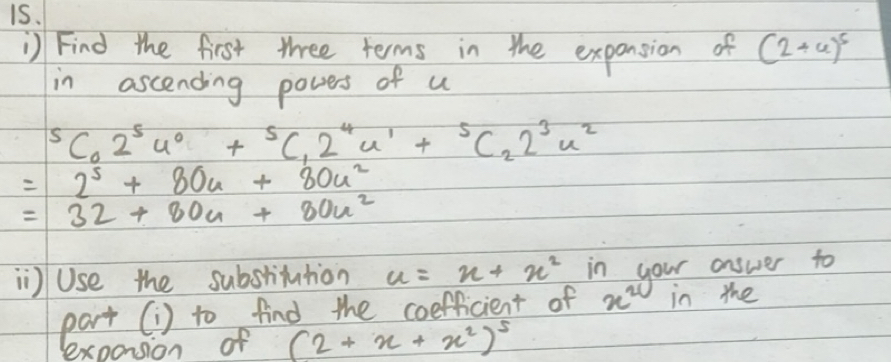 15.
i) Find the first three terms in the expansion of (2+u)⁵
in ascending powers of u
⁵C₀ 2⁵ u⁰ + ⁵C₁ 2⁴ u¹ + ⁵C₂ 2³ u²
= 2⁵ + 80u + 80u²
= 32 + 80u + 80u²
ii) Use the substitution u = x + x² in your answer to
part (i) to find the coefficient of in the
expansion of (2 + x + x²)⁵